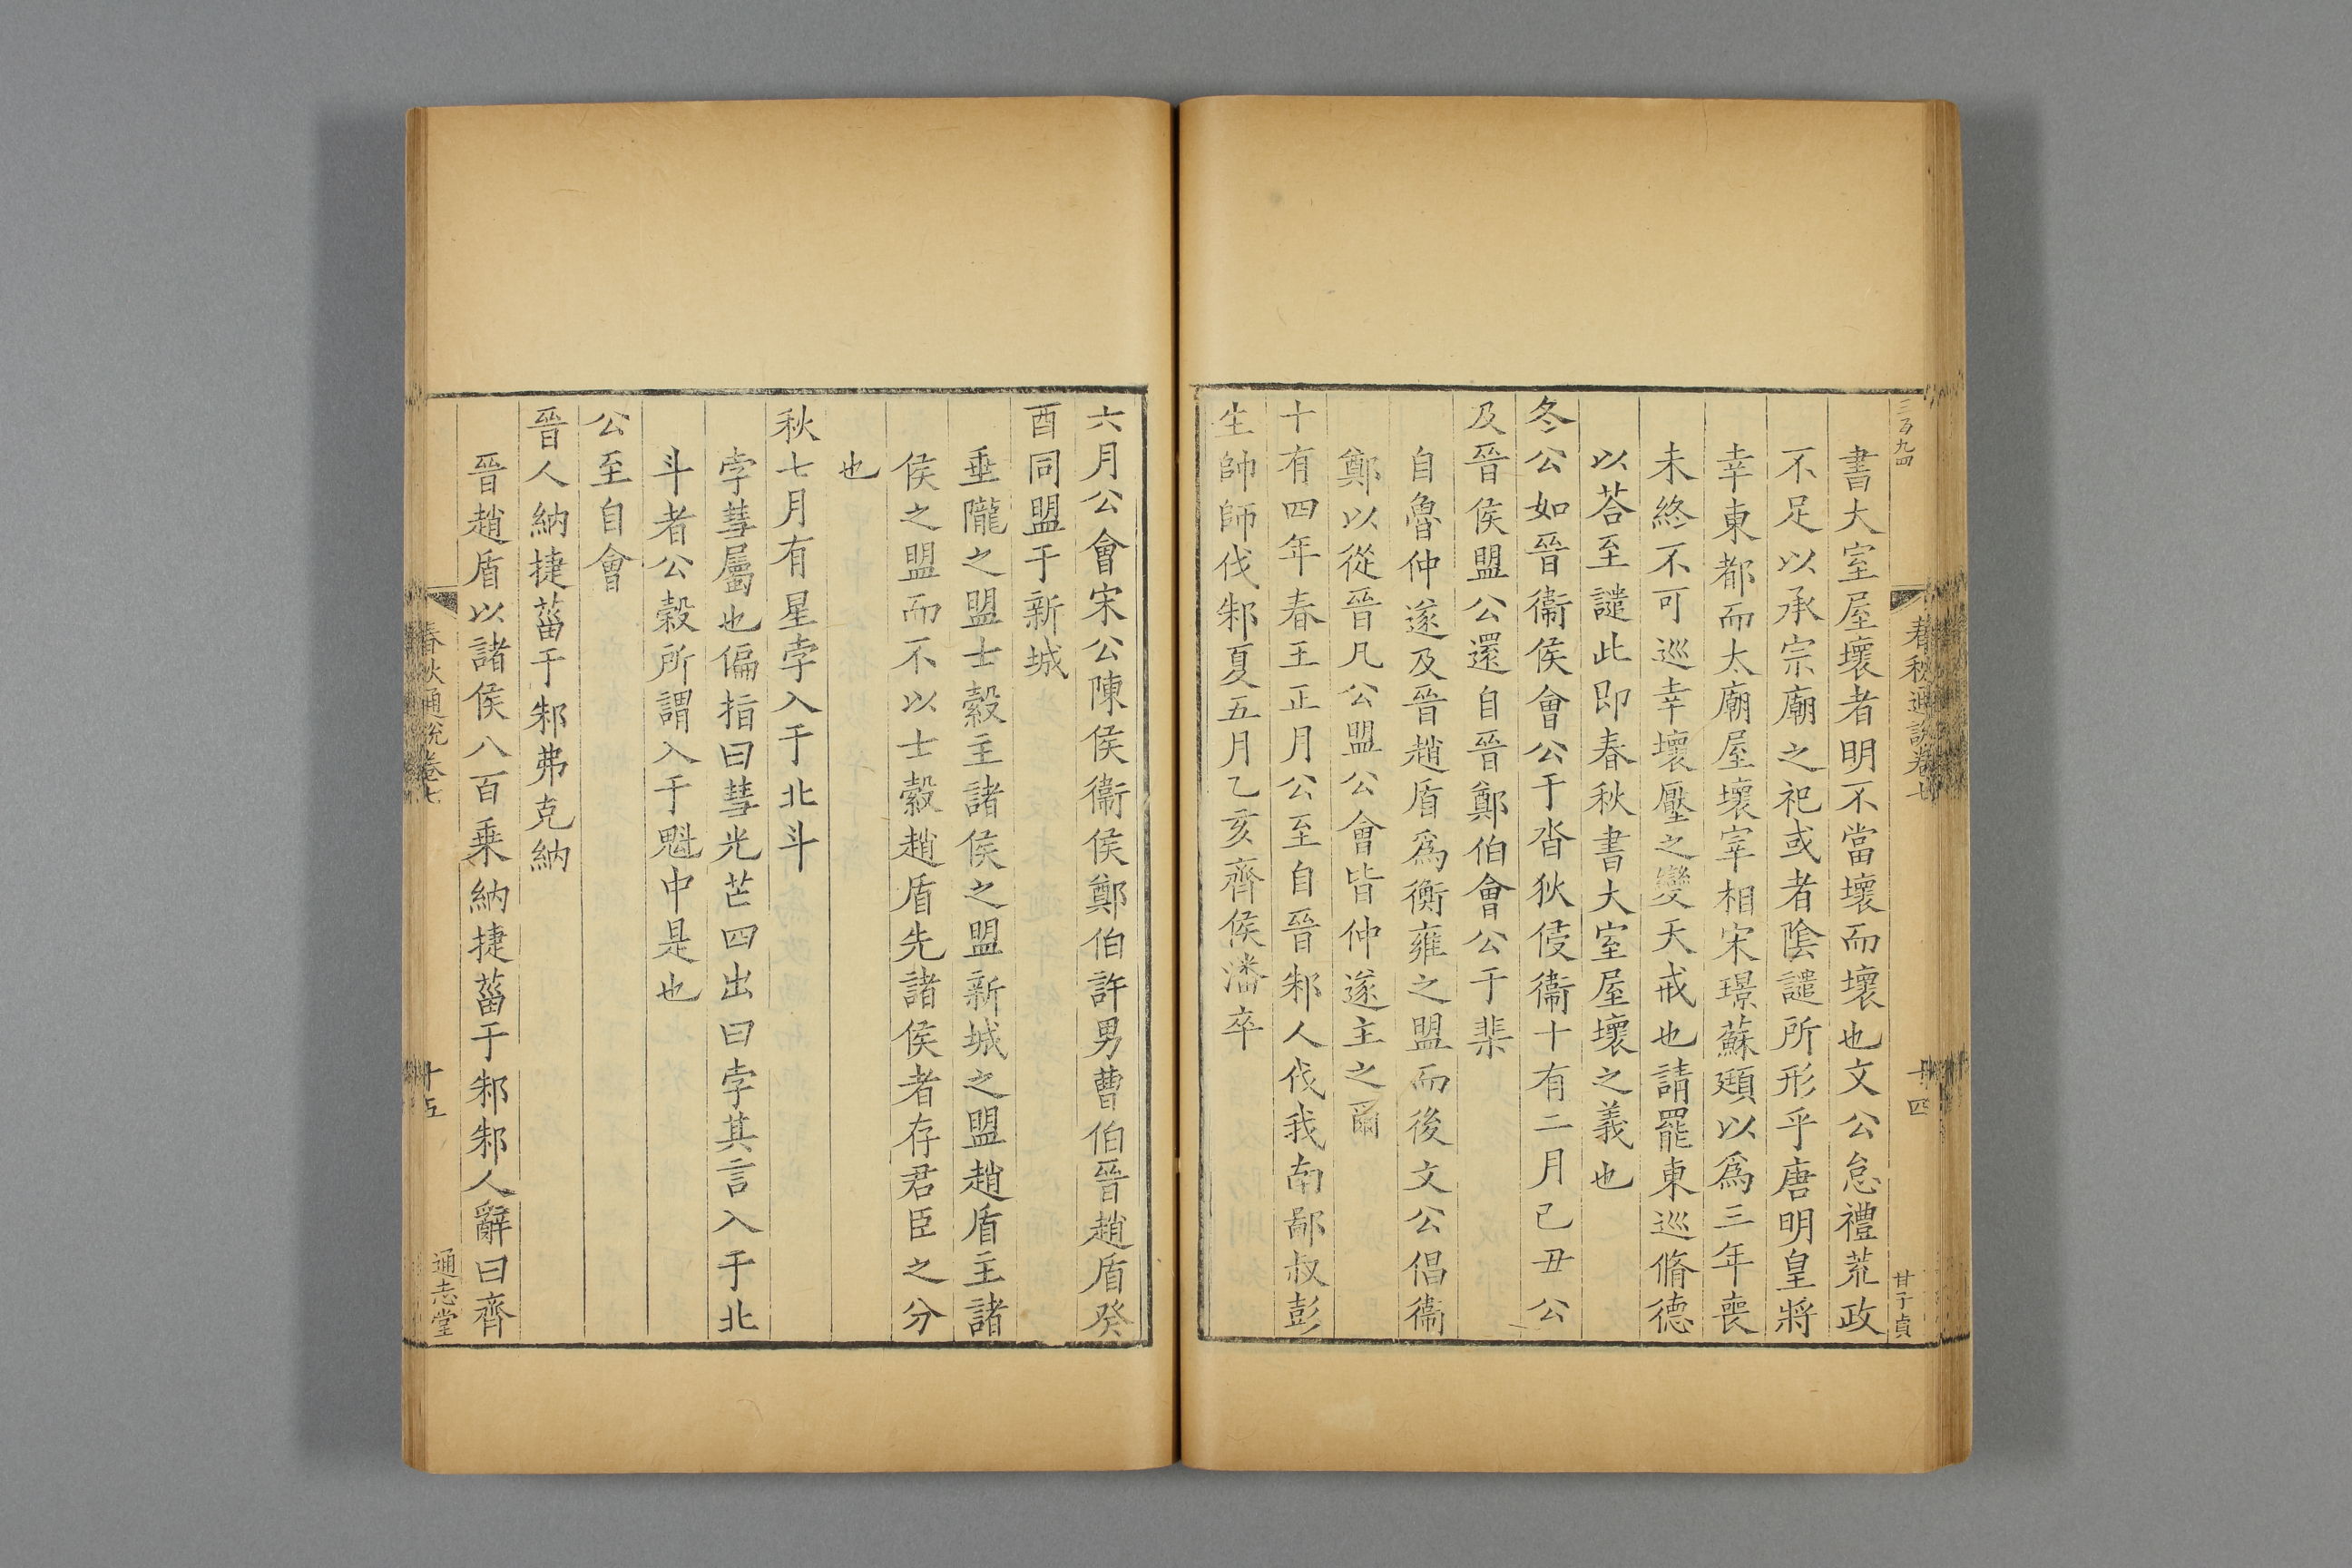 三百九四
春秋通說卷七
十四
甘子貞
書大室屋壞者明不當壞而壞也文公怠禮荒政
不足以承宗廟之祀或者陰譴所形乎唐明皇將
幸東都而太廟屋壞宰相宋璟蘇頲以為三年喪
未終不可巡幸壞壓之變天戒也請罷東巡脩德
以荅至譴此即春秋書大室屋壞之義也
冬公如晉衞侯會公于沓狄侵衞十有二月己丑公
及晉侯盟公還自晉鄭伯會公于棐
自魯仲遂及晉趙盾爲衡雍之盟而後文公倡衞
鄭以從晉凡公盟公會皆仲遂主之爾
十有四年春王正月公至自晉邾人伐我南鄙叔彭
生帥師伐邾夏五月乙亥齊侯潘卒
六月公會宋公陳侯衞侯鄭伯許男曹伯晉趙盾癸
酉同盟于新城
垂隴之盟士縠主諸侯之盟新城之盟趙盾主諸
侯之盟而不以士縠趙盾先諸侯者存君臣之分
也
秋七月有星孛入于北斗
孛彗屬也偏指曰彗光芒四出曰孛其言入于北
斗者公穀所謂入于魁中是也
公至自會
晉人納捷菑于邾弗克納
晉趙盾以諸侯八百乘納捷菑于邾邾人辭曰齊
春秋通說卷七
十五
通志堂